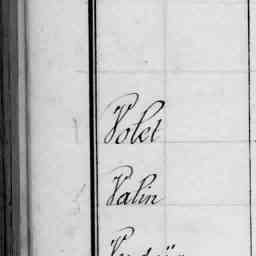 Volet
Valin